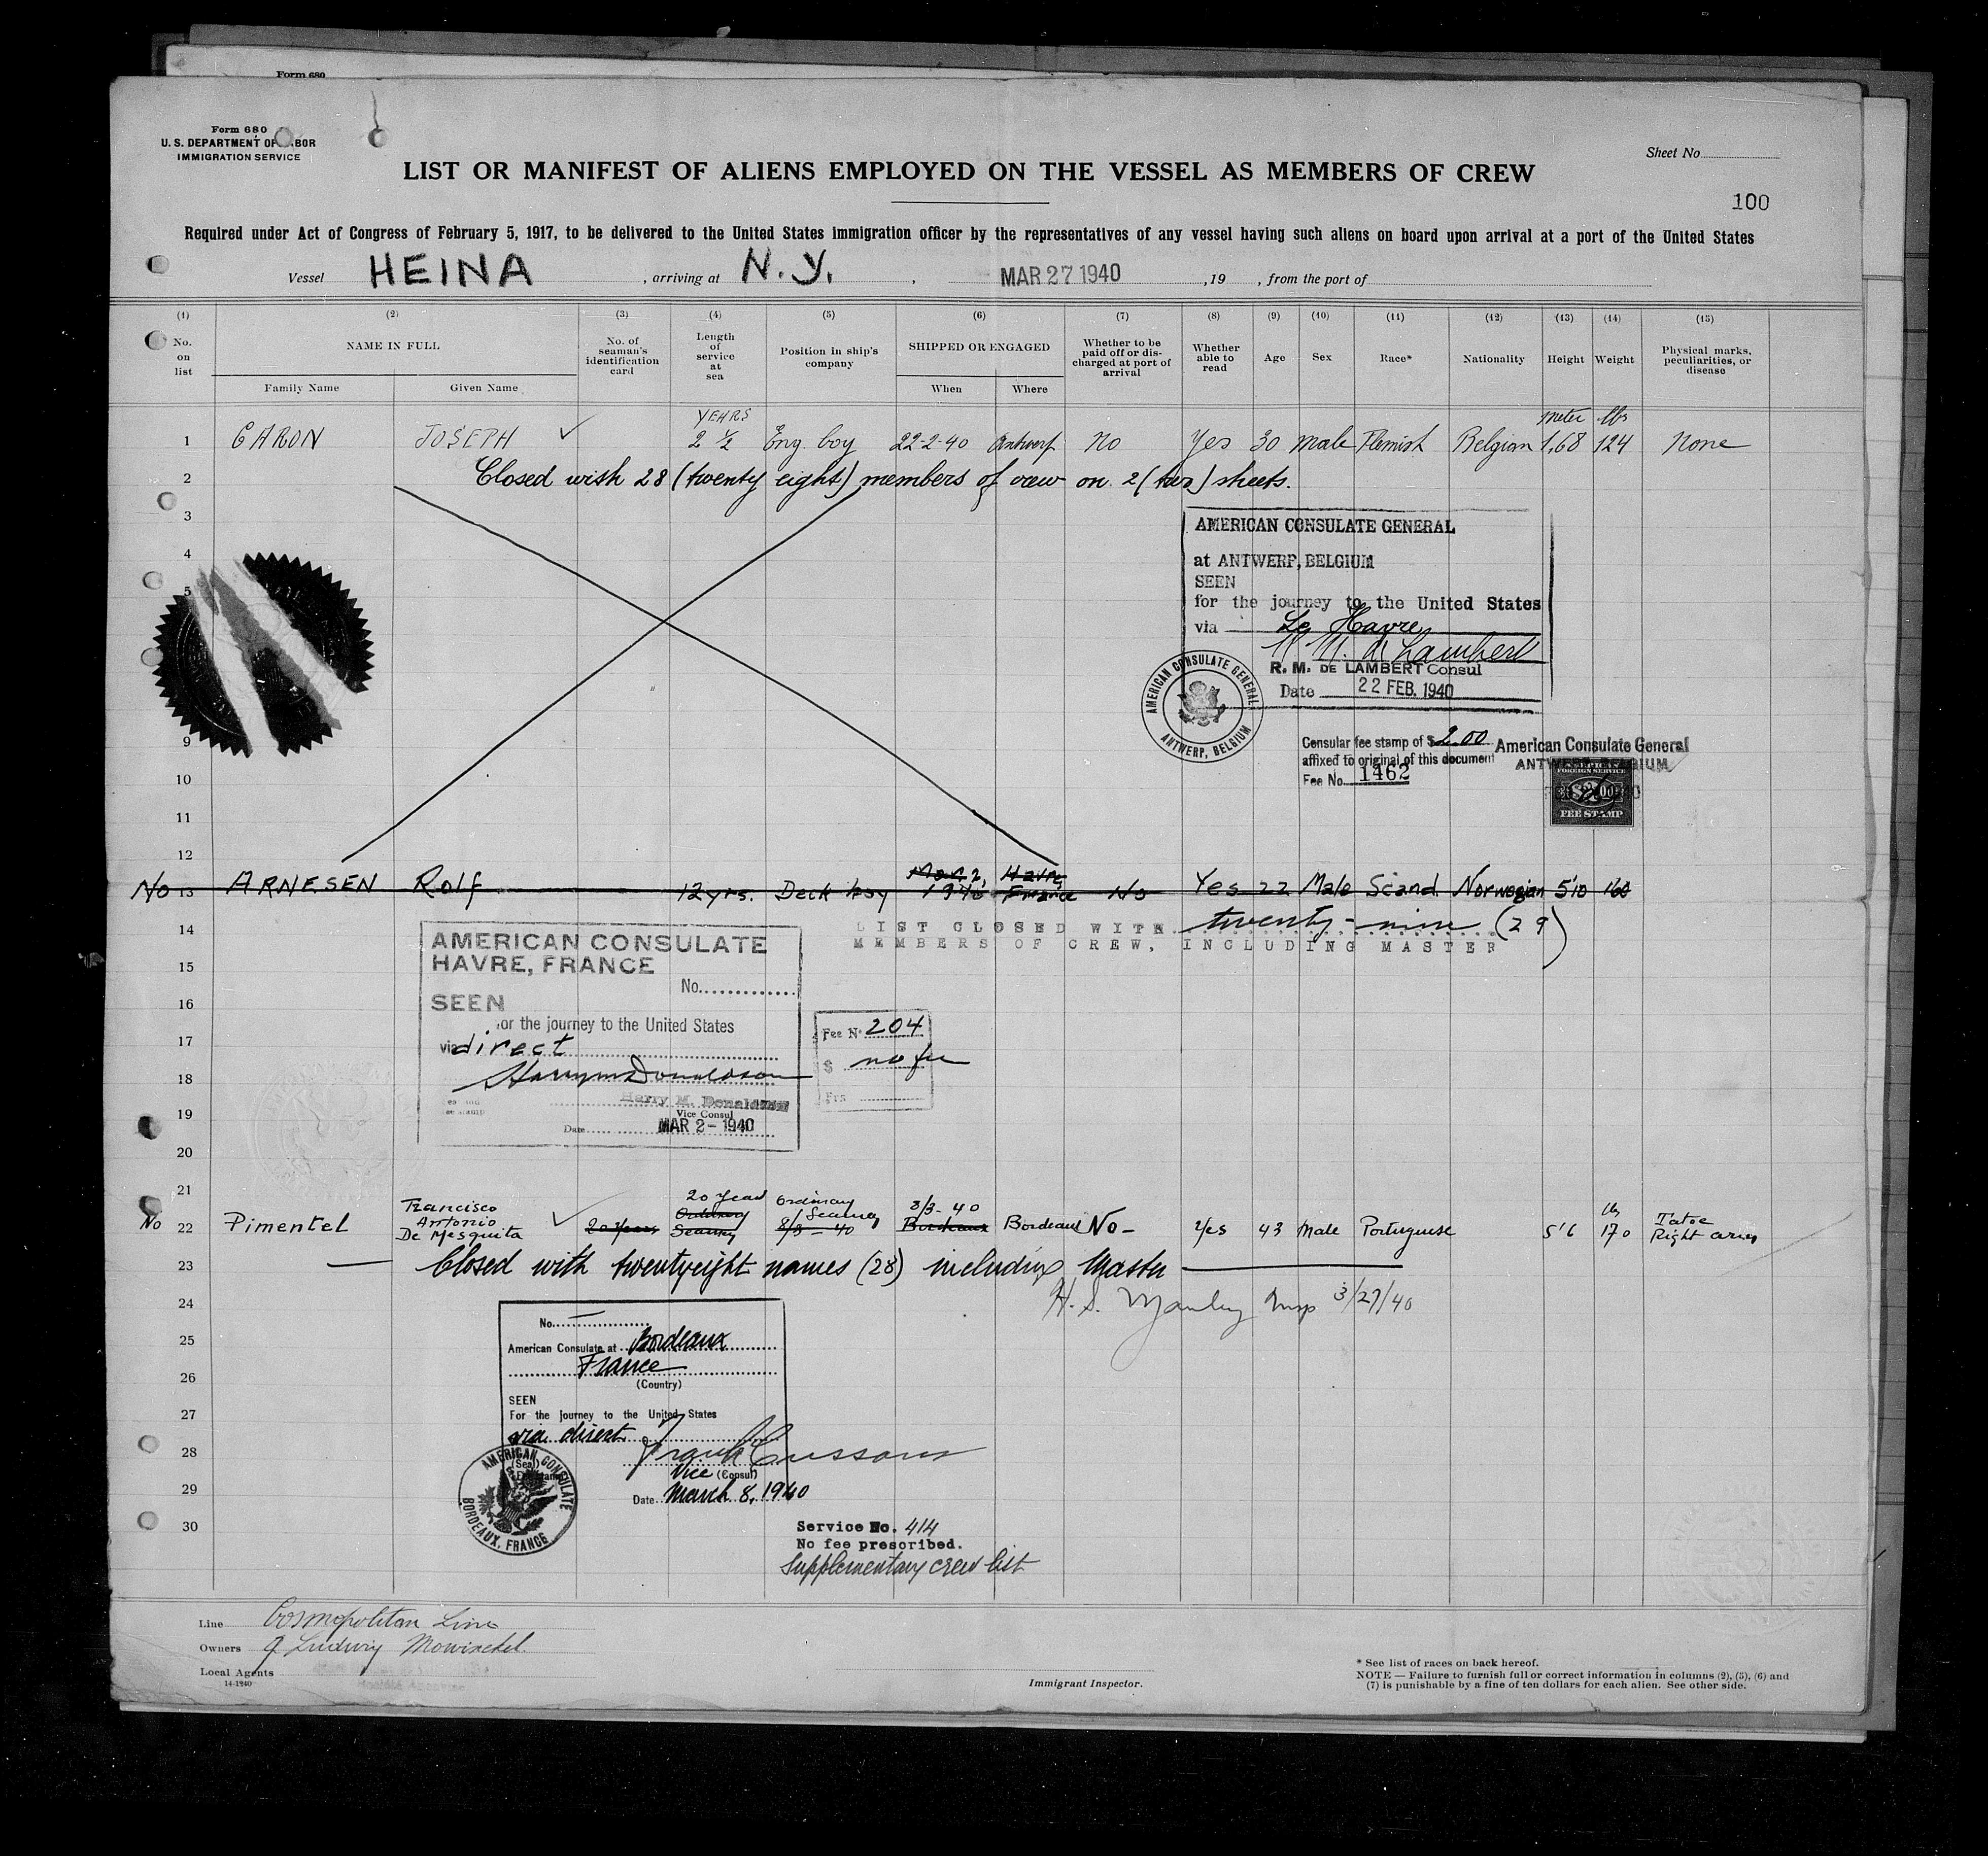 Form 680
Form 680
U. S. DEPARTMENT OF LABOR
IMMIGRATION SERVICE
Sheet No
LIST OR MANIFEST OF ALIENS EMPLOYED ON THE VESSEL AS MEMBERS OF CREW
100
Required under Act of Congress of February 5, 1917, to be delivered to the United States immigration officer by the representatives of any vessel having such aliens on board upon arrival at a port of the United States
Vessel HEINA , arriving at N.Y. , MAR 27 1940 , 19 , from the port of
(1) (2) (3) (4) (5) (6) (7) (8) (9) (10) (11) (12) (13) (14) (15)
No. on list
NAME IN FULL
Family Name
Given Name
No. of seaman's identification card
Length of service at sea
Position in ship's company
SHIPPED OR ENGAGED
When
Where
Whether to be paid off or discharged at port of arrival
Whether able to read
Age
Sex
Race*
Nationality
Height
Weight
Physical marks, peculiarities, or disease
YEARS meter lbs
1 CARON JOSEPH 2 ½ Eng. boy 22-2-40 Antwerp No Yes 30 male Flemish Belgian 1,68 124 None
2 Closed with 28 (twenty eight) members of crew on 2 (two) sheets.
3
AMERICAN CONSULATE GENERAL
4
at ANTWERP, BELGIUM
SEEN
5
for the journey to the United States
via Le Havre
R. M. DE LAMBERT Consul
Date 22 FEB. 1940
AMERICAN CONSULATE GENERAL
ANTWERP, BELGIUM
9
Consular fee stamp of $ 2.00
affixed to original of this document
Fee No. 1462
American Consulate General
ANTWERP, BELGIUM
FOREIGN SERVICE
$2.00
FEE STAMP
10
11
12
No 13 ARNESEN Rolf 12 yrs. Deck boy Mar 2, 1940 Havre France No Yes 22 Male Scand. Norwegian 5'10 160
14 LIST CLOSED WITH twenty-nine (29)
MEMBERS OF CREW, INCLUDING MASTER
AMERICAN CONSULATE
HAVRE, FRANCE
15
No.
16
SEEN
for the journey to the United States
17
via direct
18
Harry M. Donaldson
Harry M. Donaldson
19
Vice Consul
Date MAR 2 - 1940
Fee No. 204
$ no fee
Frs
20
21
No 22 Pimentel Francisco Antonio De Mesquita 20 years Ordinary Seaman 8/3-40 20 years Ordinary Seaman 8/3-40 Bordeaux Bordeaux No- Yes 43 Male Portuguese 5'6 170 lbs Tatoe Right arm
23 Closed with twentyeight names (28) including Master
24 H. S. Manley Insp 3/27/40
No.
25
American Consulate at Bordeaux
France
26
(Country)
SEEN
27
For the journey to the United States
via direct
28
(Seal)
Vice (Consul)
29
Date March 8, 1940
AMERICAN CONSULATE
BORDEAUX, FRANCE
30
Service No. 414
No fee prescribed.
Supplementary crew list
Line Cosmopolitan Line
Owners J Ludwig Mowinckel
Local Agents
14-1240
Immigrant Inspector.
* See list of races on back hereof.
NOTE — Failure to furnish full or correct information in columns (2), (5), (6) and
(7) is punishable by a fine of ten dollars for each alien. See other side.